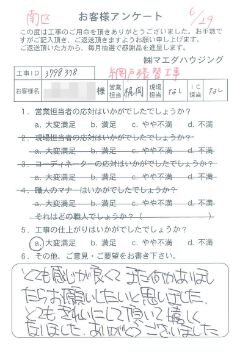 南区
お客様アンケート
6/29
この度は工事のご用命を頂きありがとうございました。お手数で
すがご記入頂き、ご返送頂きますようお願い申し上げます。
ご返送頂いた方から、毎月抽選で感謝品を進呈します。
㈱マエダハウジング
工事ID 3798378 網戸張替工事
様 営業担当 現現担当 なし CD担当 なし
1．営業担当者の応対はいかがでしたでしょうか？
a．大変満足 b．満足 c．やや不満 d．不満
2．現場担当者の応対はいかがでしたでしょうか？
a．大変満足 b．満足 c．やや不満 d．不満
3．コーディネーターの応対はいかがでしたでしょうか？
a．大変満足 b．満足 c．やや不満 d．不満
4．職人のマナーは応対はいかがでしたでしょうか？
a．大変満足 b．満足 c．やや不満 d．不満
それはどの職人でしょうか？（ ）
5．工事の仕上がりはいかがでしたでしょうか？
a．大変満足 b．満足 c．やや不満 d．不満
6．その他、ご意見・ご要望をお書き下さい。
とても感じが良くて また何かありまし
たらお願いしたいと思いました。
とてもきれいにして頂いて嬉しく
思いました。ありがとうございました